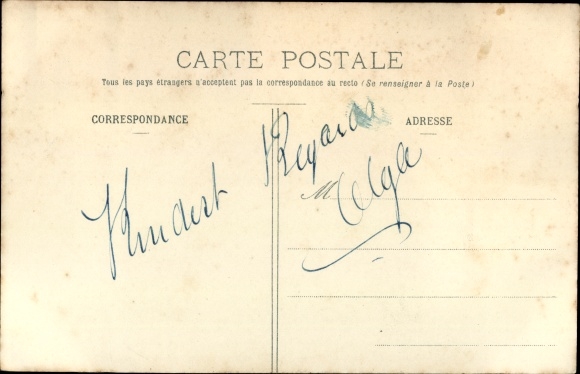 CARTE POSTALE
Tous les pays étrangers n'acceptent pas la correspondance au recto (Se renseigner à la Poste)
CORRESPONDANCE
ADRESSE
Kindest Regards
M
Olga